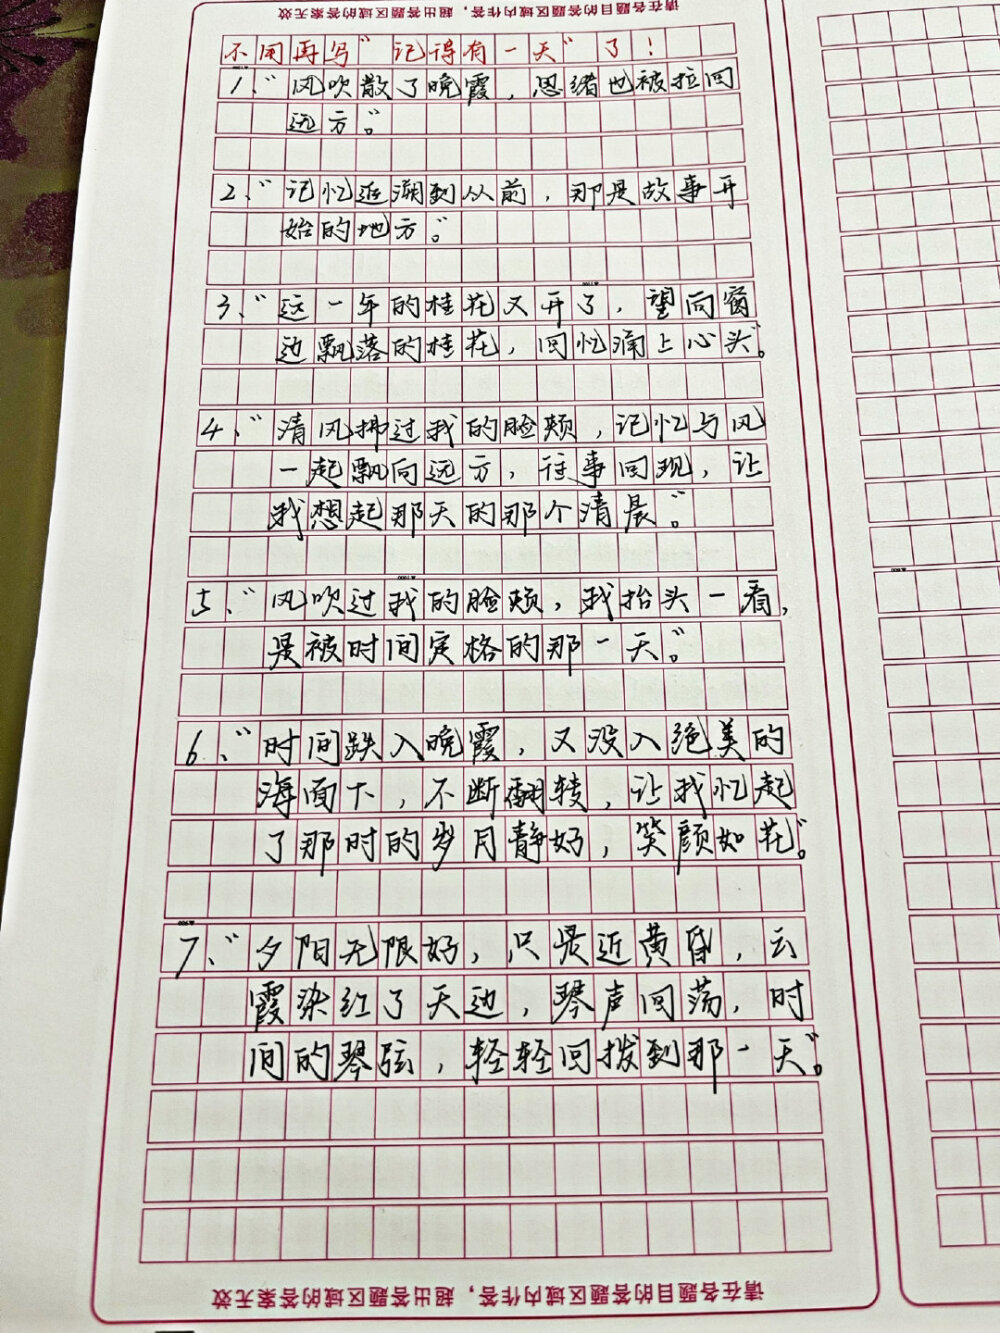 请在各题目的答题区域内作答，超出答题区域的答案无效
不用再写“记得有一天”了！
1、“风吹散了晚霞，思绪也被拉回
远方”。
2、“记忆追溯到从前，那是故事开
始的地方”。
3、“这一年的桂花又开了，望向窗
边飘落的桂花，回忆涌上心头”。
4、“清风拂过我的脸颊，记忆与风
一起飘向远方，往事回现，让
我想起那天的那个清晨”。
5、“风吹过我的脸颊，我抬头一看，
是被时间定格的那一天”。
6、“时间跌入晚霞，又没入绝美的
海面下，不断翻转，让我忆起
了那时的岁月静好，笑颜如花”。
7、“夕阳无限好，只是近黄昏，云
霞染红了天边，琴声回荡，时
间的琴弦，轻轻回拨到那一天”。
请在各题目的答题区域内作答，超出答题区域的答案无效